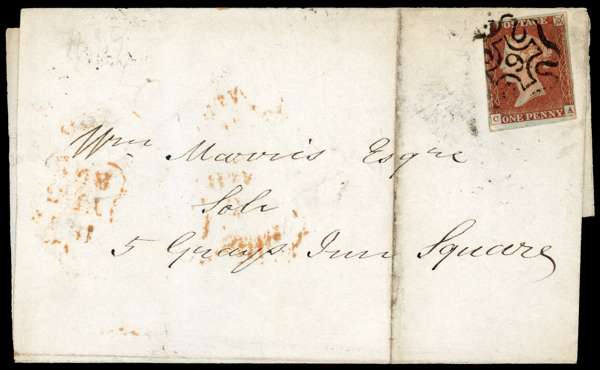 POSTAGE
6
C ONE PENNY A
Wm Morris Esqre
Solr
5 Grays Inn Square